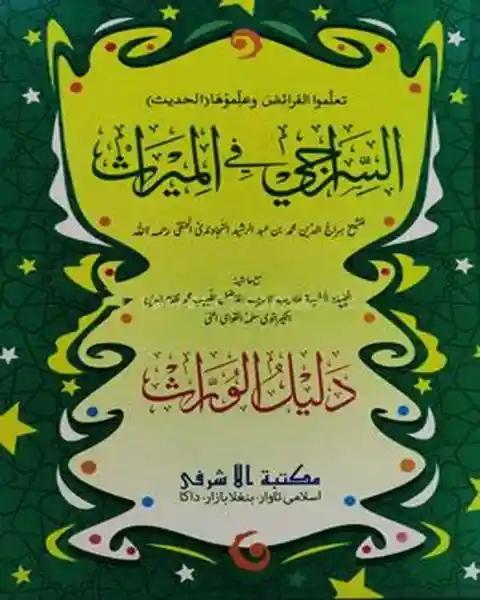 تعلموا الفرائض وعلموها (الحديث)
السراجي في الميراث
للشيخ سراج الدين محمد بن عبد الرشيد السجاوندي الحنفي رحمه الله
مع حاشية
محمد نظام الدين
دليل الوراث
مكتبة الاشرفى
اسلامى تاوار، بنغلا بازار، داكا